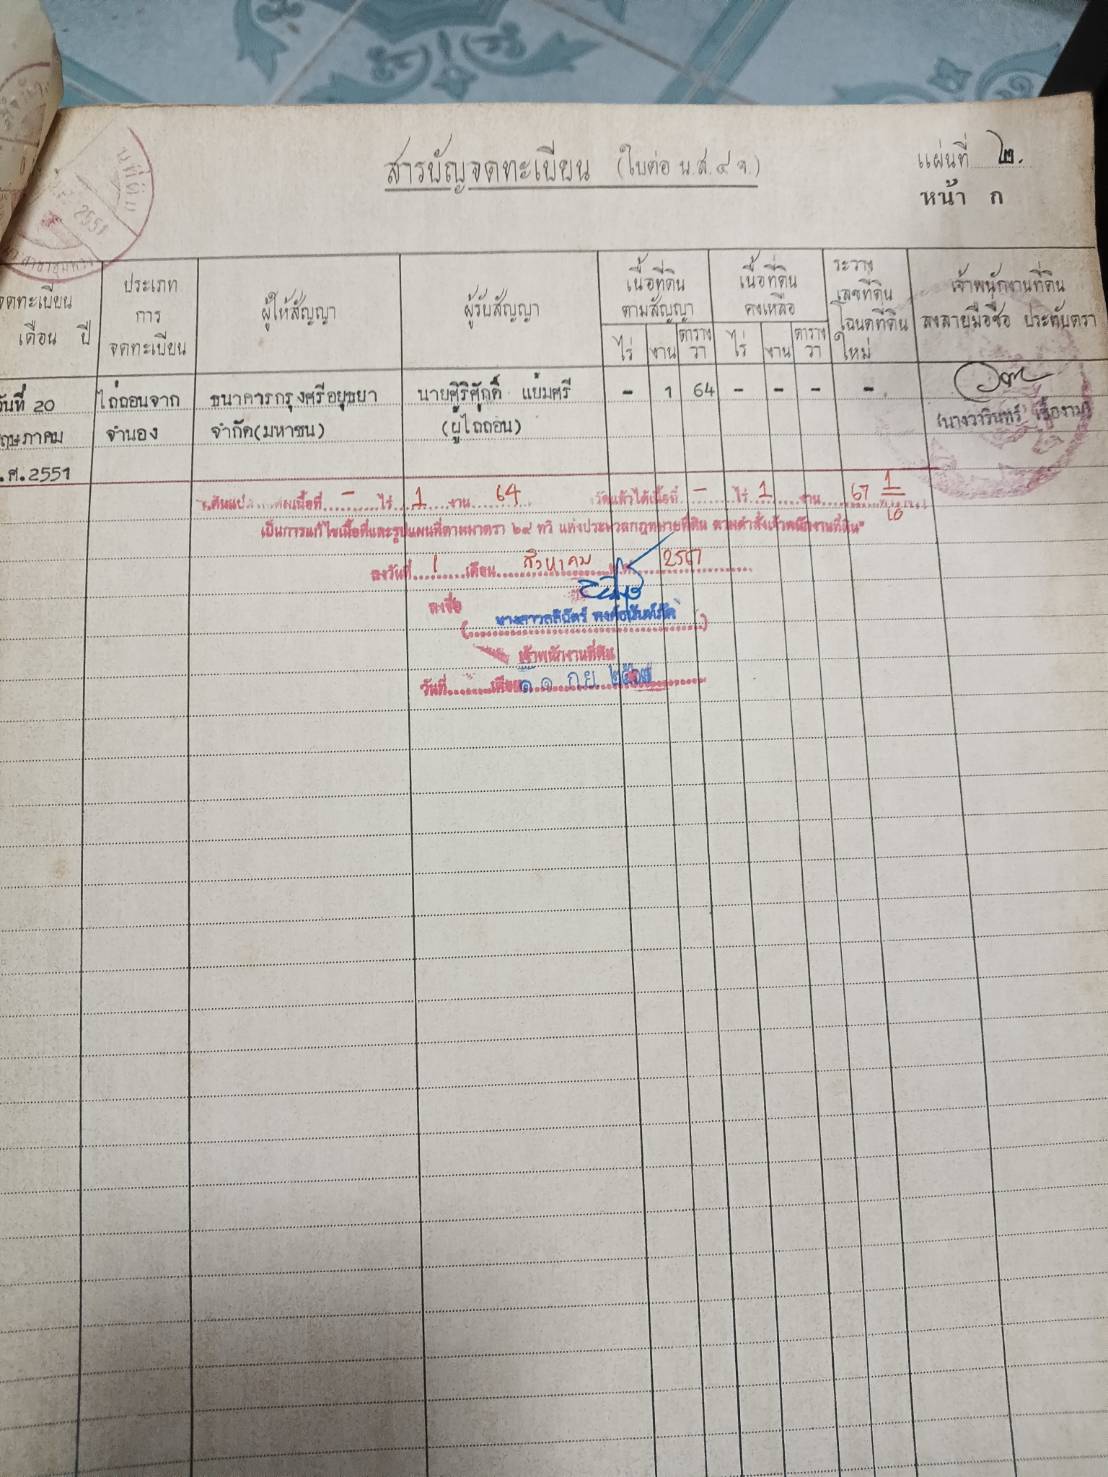 สารบัญจดทะเบียน (ใบต่อ น.ส.๔ จ.)
แผ่นที่ ๒.
หน้า ก
จดทะเบียน
เดือน ปี
ประเภท
การ
จดทะเบียน
ผู้ให้สัญญา
ผู้รับสัญญา
เนื้อที่ดิน
ตามสัญญา
ไร่ งาน ตาราง
วา
เนื้อที่ดิน
คงเหลือ
ไร่ งาน ตาราง
วา
ระวาง
เลขที่ดิน
โฉนดที่ดิน
ใหม่
เจ้าพนักงานที่ดิน
ลงลายมือชื่อ ประทับตรา
วันที่ 20 ไถ่ถอนจาก ธนาคารกรุงศรีอยุธยา นายศิริศักดิ์ แย้มศรี - 1 64 - - - -
พฤษภาคม จำนอง จำกัด(มหาชน) (ผู้ไถ่ถอน)
พ.ศ.2551
เนื้อที่ - ไร่ 1 งาน 64 รังวัดแล้วได้เนื้อที่ - ไร่ 1 งาน 67 1/10
เป็นการแก้ไขเนื้อที่และรูปแผนที่ตามมาตรา ๖๙ ทวิ แห่งประมวลกฎหมายที่ดิน ตามคำสั่งเจ้าพนักงานที่ดิน"
ลงวันที่ 1 เดือน สิงหาคม 2567
ลงชื่อ
เจ้าพนักงานที่ดิน
วันที่ เดือน ๑๑ ก.ย. ๒๕๖๗
2551